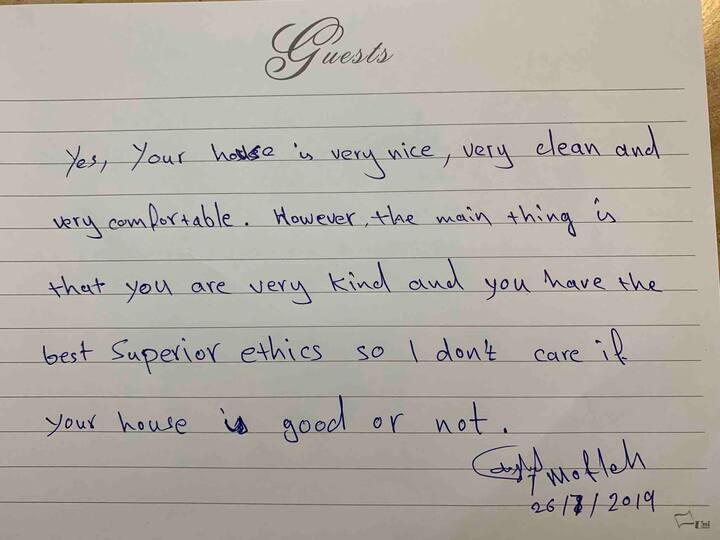 Guests
Yes, Your house is very nice, very clean and
very comfortable. However, the main thing is
that you are very kind and you have the
best Superior ethics so I don't care if
your house is good or not.
Mofleh
26/7/2019